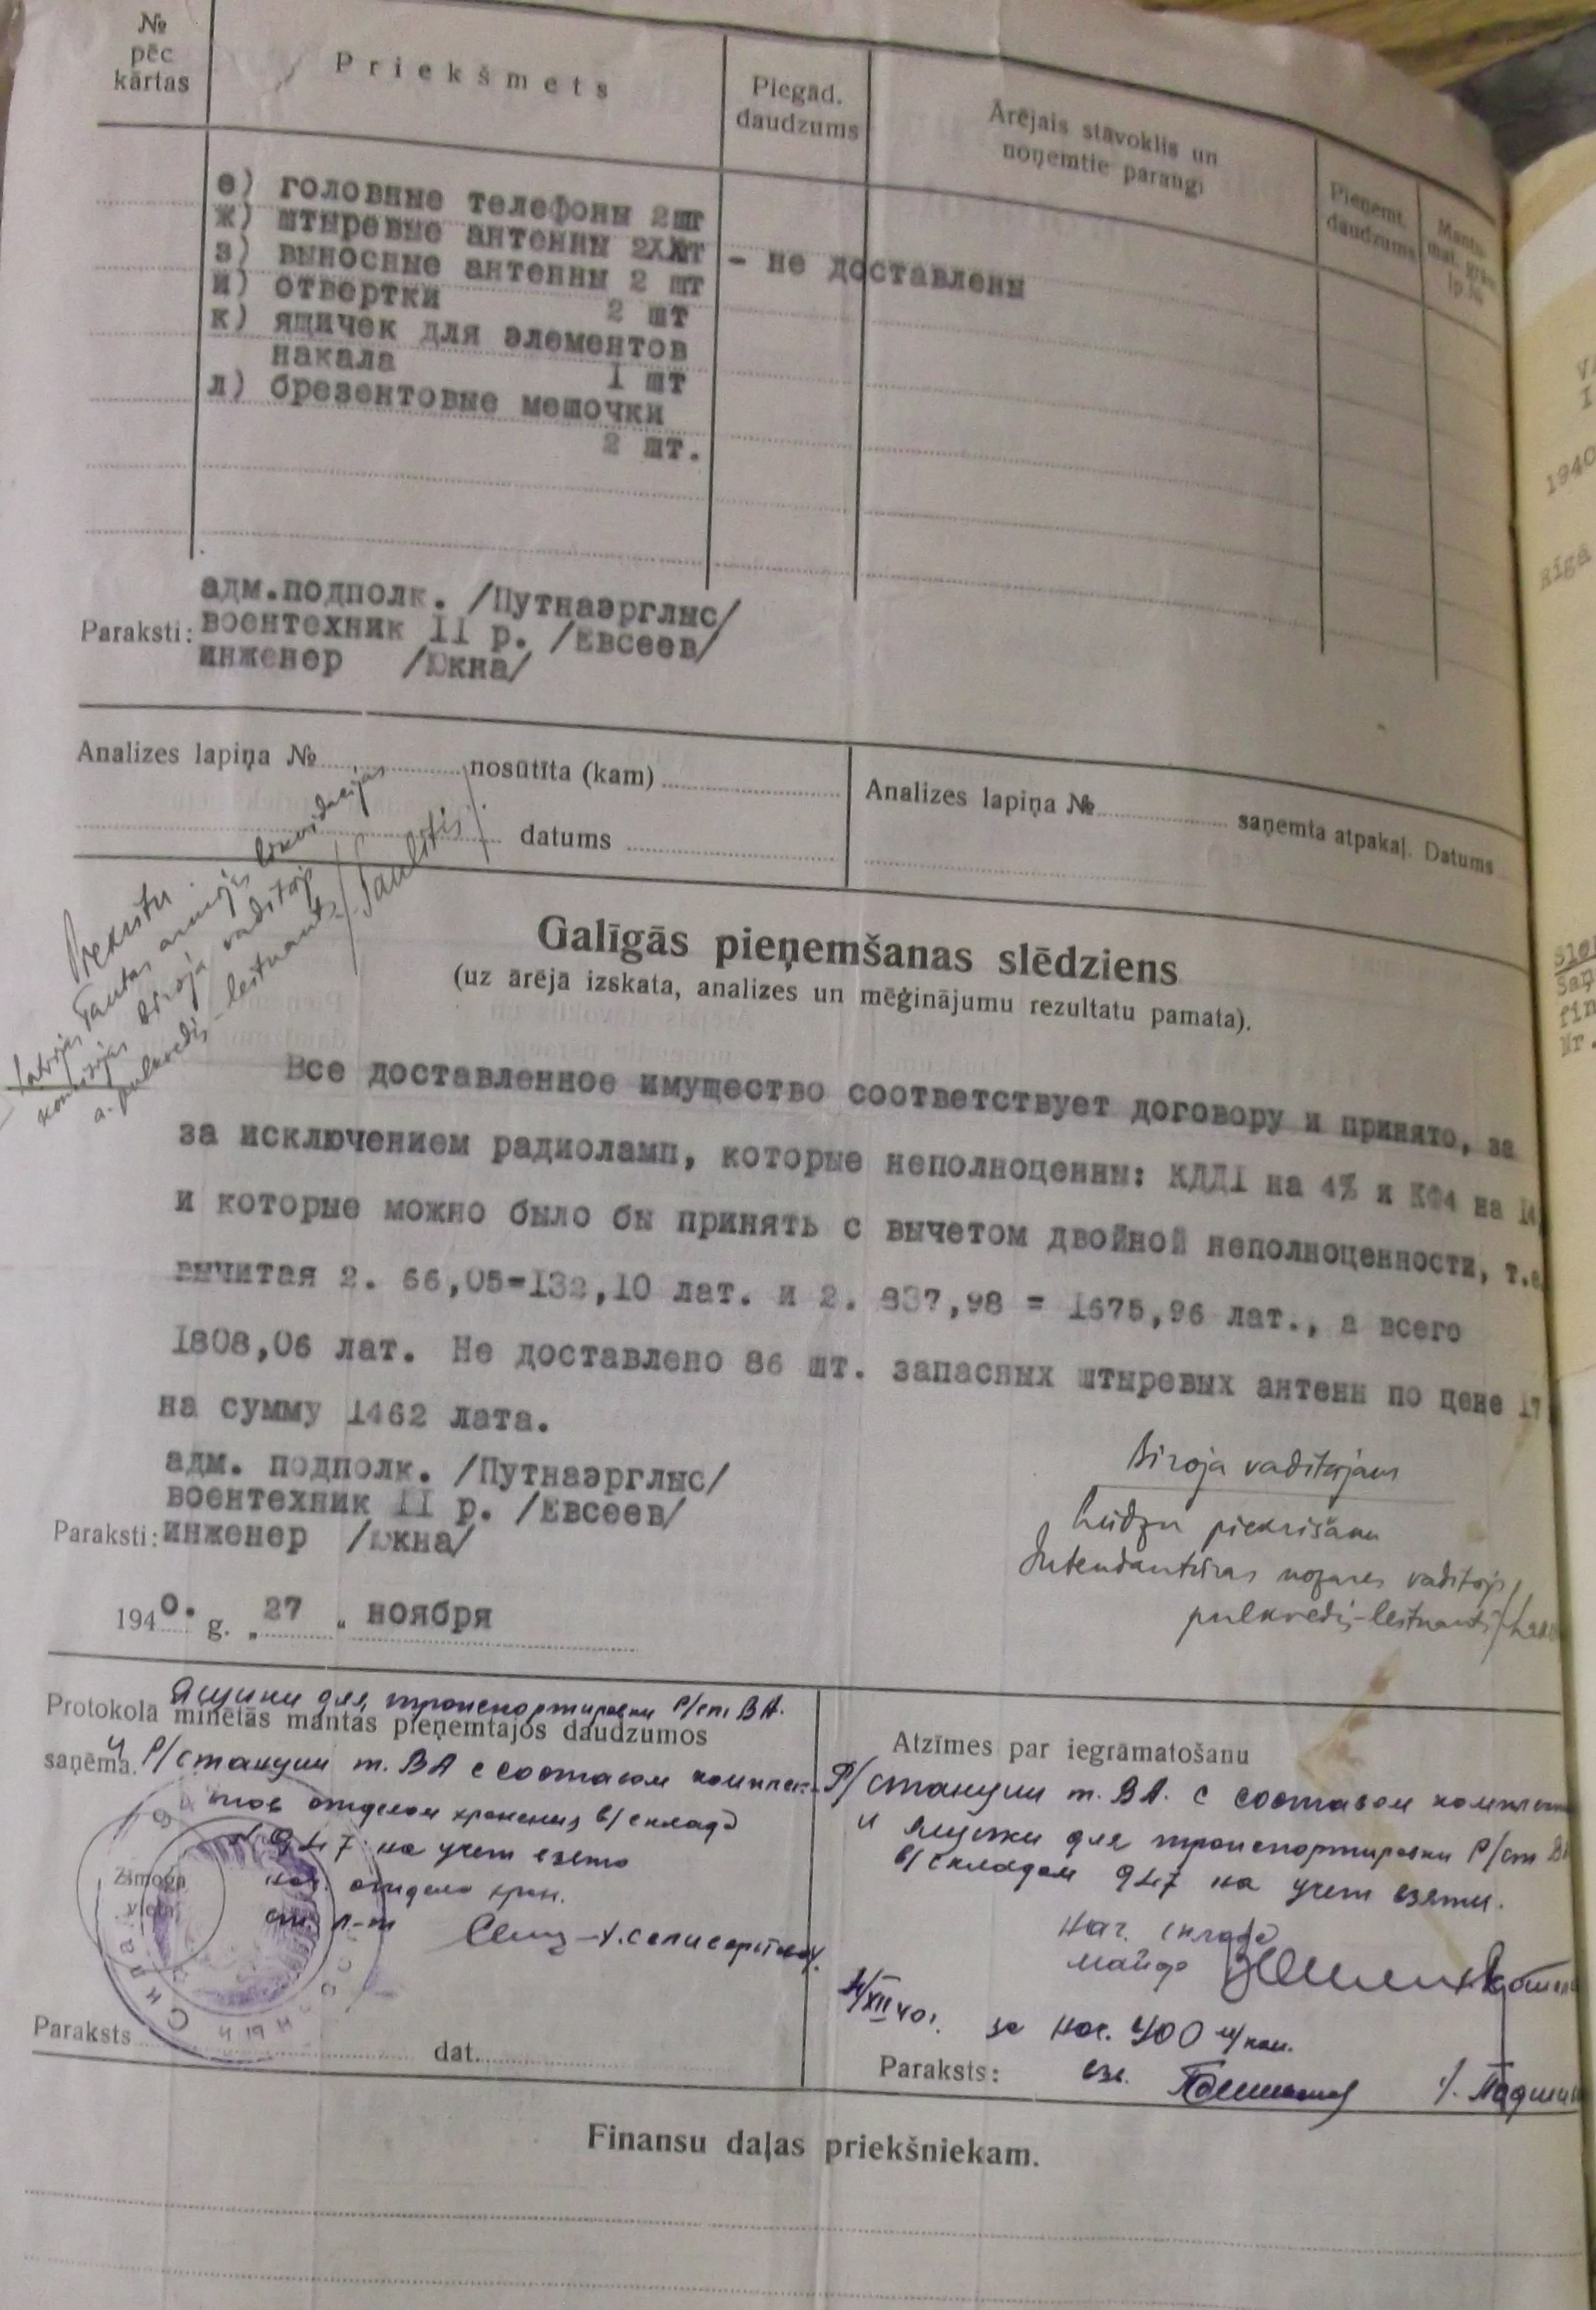 №
pēc
kārtas
Priekšmets
Piegād.
daudzums
Ārējais stāvoklis un
noņemtie paraugi
Pieņemt.
daudzums
Mantu
mat. grām.
lp. №
е) головные телефоны 2шт
ж) штыревые антенны 2ХХт - не доставлены
з) выносные антенны 2 шт
и) отвертки 2 шт
к) ящичек для элементов
накала 1 шт
л) брезентовые мешочки
2 шт.
адм.подполк. /Путнаэрглыс/
Paraksti: воентехник II р. /Евсеев/
инженер /Юкна/
Analizes lapiņa № nosūtīta (kam)
datums
Analizes lapiņa № saņemta atpakaļ. Datums
Piekrītu.
Latvijas Tautas armijas likvidācijas
komisijas biroja vadītājs
a. pulkvedis-leitnants /Saulītis/
Galīgās pieņemšanas slēdziens
(uz ārējā izskata, analizes un mēģinājumu rezultatu pamata).
Все доставленное имущество соответствует договору и принято, за
за исключением радиоламп, которые неполноценны: КДД1 на 4% и КФ4 на 14
и которые можно было бы принять с вычетом двойной неполноценности, т.е.
вычитая 2. 66,05=132,10 лат. и 2. 837,98 = 1675,96 лат., а всего
1808,06 лат. Не доставлено 86 шт. запасных штыревых антенн по цене 17
на сумму 1462 лата.
адм. подполк. /Путнаэрглыс/
воентехник II р. /Евсеев/
Paraksti: инженер /Юкна/
1940. g. „27„ ноября
Biroja vadītājam
Lūdzu piekrišanu
Intendantūras nozares vadītājs,
pulkvedis-leitnants
Ящики для транспортировки Р/ст ВА.
Protokolā minētās mantas pieņemtajos daudzumos
saņēma. и Р/станции т. ВА с составом комплек-
тов отделом хранения в/склада
947 на учет взято
нач. отдела хран.
ст. л-т
Zīmoga
vieta
Paraksts
dat.
Atzīmes par iegrāmatošanu
Р/станции т. ВА. с составом комплектов
и ящики для транспортировки Р/ст ВА
в/складом 947 на учет взяты.
Нач. склада
майор
4/XII 40г.
за нач.
Paraksts:
Finansu daļas priekšniekam.